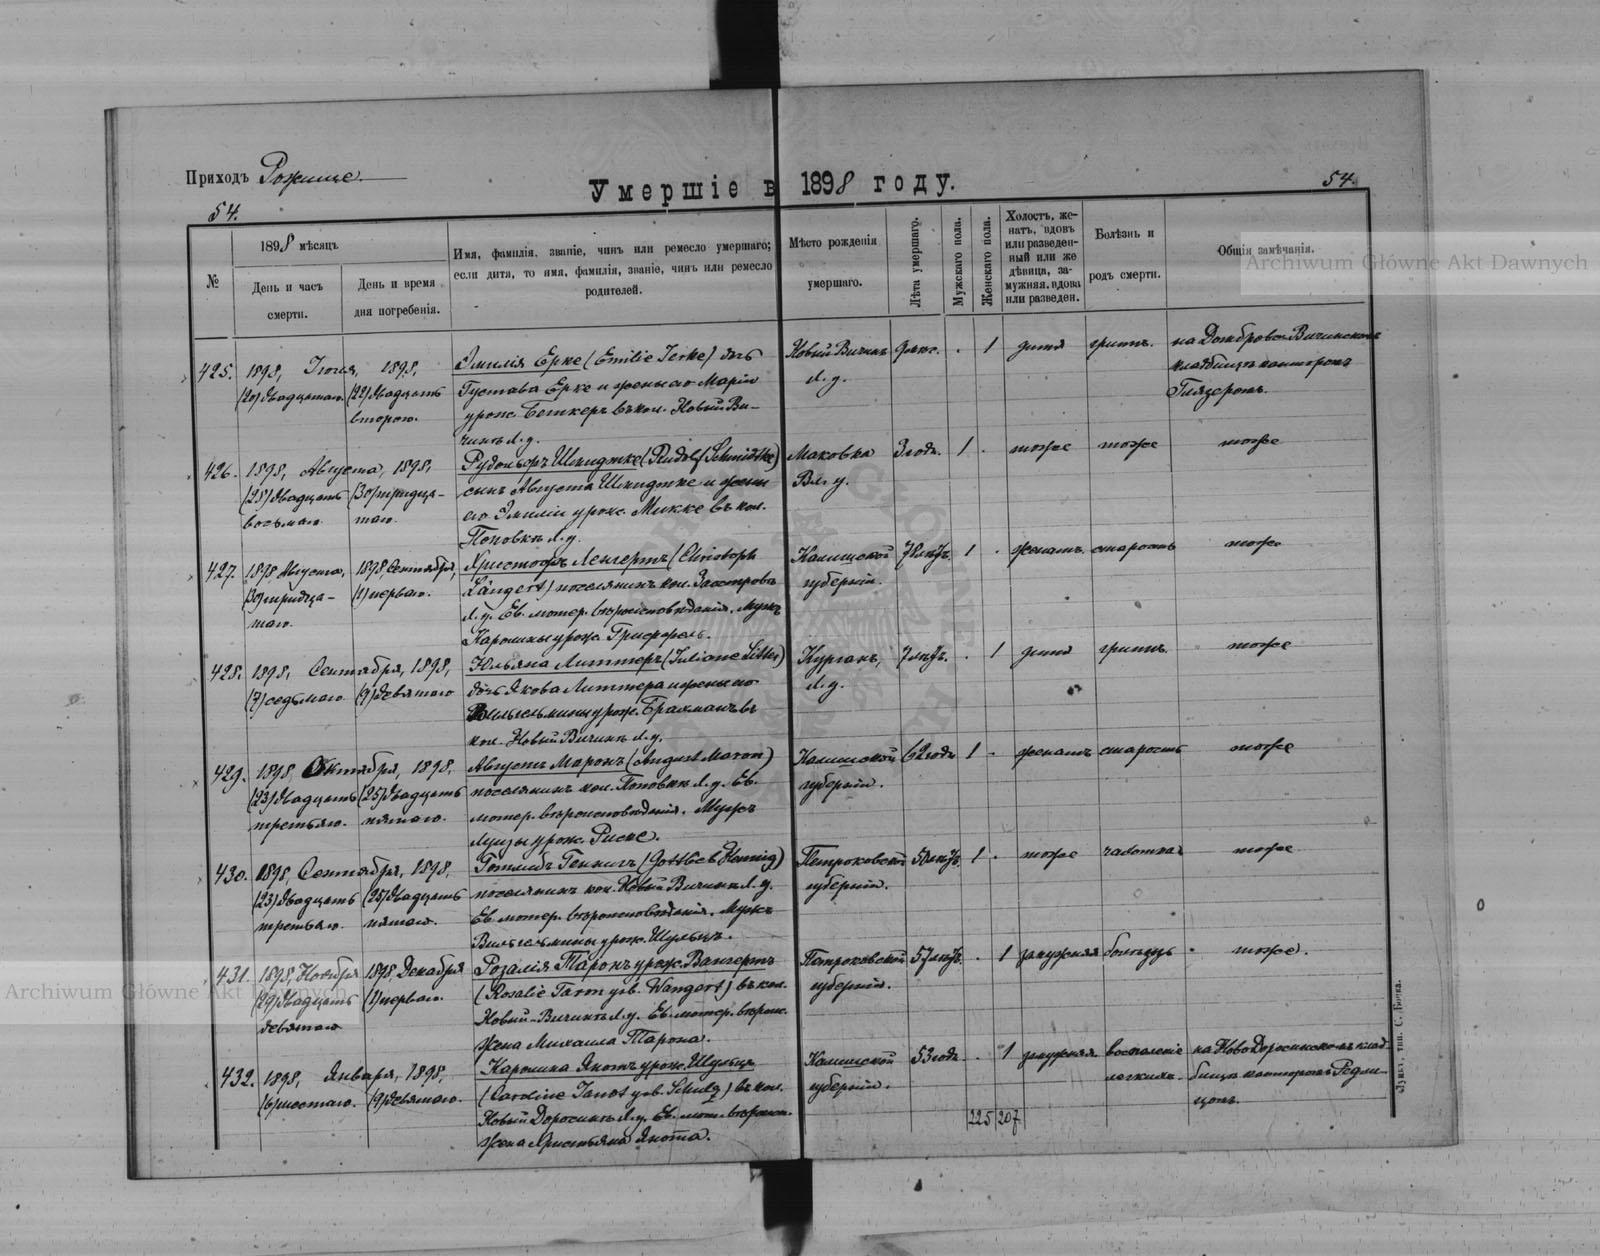 Приходъ Рожище.
Умершіе въ 1898 году.
54.
54.
№
1898 мѣсяцъ
День и часъ смерти.
День и время дня погребенія.
Имя, фамилія, званіе, чинъ или ремесло умершаго;
если дитя, то имя, фамилія, званіе, чинъ или ремесло
родителей.
Мѣсто рожденія
умершаго.
Лѣта умершаго.
Мужскаго пола.
Женскаго пола.
Холостъ, же-
натъ, вдовъ
или разведен-
ный или же
дѣвица, за-
мужняя, вдова
или разведен.
Болѣзнь и
родъ смерти.
Общія замѣчанія.
Archiwum Główne Akt Dawnych
425. 1898, Іюля, 1898,
(20) двадцатаго. (22) двадцать
втораго.
Эмилія Ерке (Emilie Jerke) дочь
Густава Ерке и жены его Маріи
урож. Беткеръ въ кол. Новый Ви-
чинъ Л. у.
Новый Вичинъ
Л. у.
1
дитя
на Домброво-Вичинскомъ
кладбищѣ канторомъ
426. 1898, Августа, 1898,
(28) двадцать (30) тридца-
восьмаго. таго.
Рудольфъ Шмидтке (Rudolf Schmidtke)
сынъ Августа Шмидтке и жены
его Эмиліи урож. Микке въ кол.
Поповка Л. у.
Маковка
Вл. у.
3 годъ.
1
тоже
тоже
тоже
427. 1898 Августа, 1898, Сентября,
(30) тридца- (1) перваго.
таго.
Христофъ Ленгертъ (Christoph
Längert) поселянинъ кол.
Л. у. Ев. лютер. вѣроисповѣданія. Мужъ
Каролины урож.
Калишской
губерніи.
1
женатъ
старость
тоже
428. 1898, Сентября, 1898,
(7) седьмаго (9) девятаго
Юльяна Литтеръ (Juliane Litter)
дочь Якова Литтера и жены его
Вильгельмины урож. Брахманъ въ
кол. Новый Вичинъ Л. у.
Курганъ,
Л. у.
7 лѣтъ.
1
дитя
тоже
429. 1898, Октября, 1898,
(23) двадцать (25) двадцать
третьяго. пятаго.
Августъ Маронъ (August Maron)
поселянинъ кол. Поповка Л. у. Ев.
лютер. вѣроисповѣданія. Мужъ
Луизы урож. Риске.
Калишской
губерніи.
62 годъ
1
женатъ
старость
тоже
430. 1898, Сентября, 1898,
(23) двадцать (25) двадцать
третьяго. пятаго.
Готлибъ Геннигъ (Gottlieb Hennig)
поселянинъ кол. Новый Вичинъ Л. у.
Ев. лютер. вѣроисповѣданія. Мужъ
Вильгельмины урож. Шульцъ.
Петроковской
губерніи.
1
тоже
чахотка
тоже
431. 1898, Ноября 1898, Декабря
(29) двадцать (1) перваго.
девятаго
Розалія Таронъ урож. Вангертъ
(Rosalie Taron geb. Wangert) въ кол.
Новый-Вичинъ Л. у. Ев. лютер. вѣроис.
Жена Михаила Тарона.
Петроковской
губерніи.
57 лѣтъ.
1
замужняя
тоже.
Archiwum Główne Akt Dawnych
432. 1898, Января, 1898,
(6) шестаго. (9) девятаго.
Каролина Янотъ урож. Шульцъ
(Caroline Janot geb. Schulz) въ кол.
Новый Доросинъ Л. у. Ев. лют. вѣроисп.
Жена Христьяна Янота.
Калишской
губерніи.
53 годъ
1
замужняя
воспаленіе
легкихъ.
на Ново-Доросинскомъ клад-
бищѣ канторомъ Редли-
цомъ.
225 207